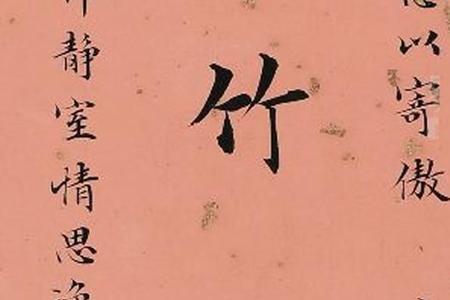 以寄傲
竹
静室情思